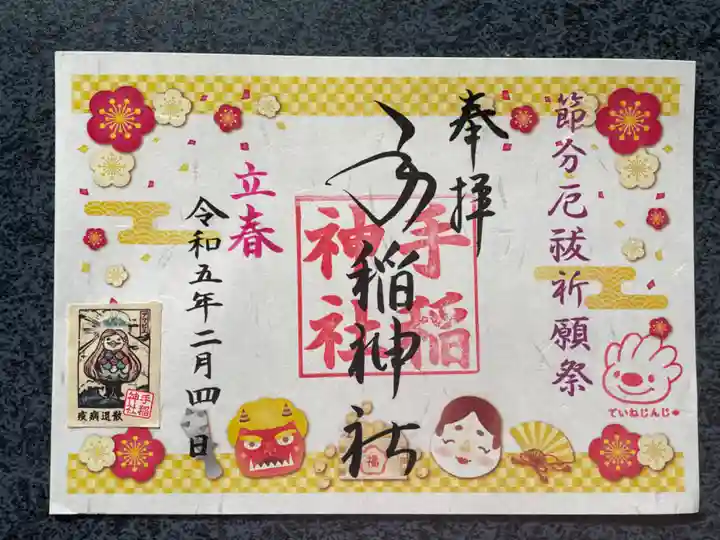 節分厄祓祈願祭
奉拝
手稲神社
手稲
神社
立春
令和五年二月四日
福
ていねじんじゃ
疫病退散
手稲
神社